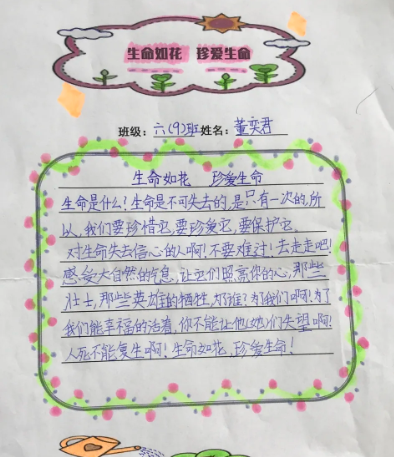 生命如花 珍爱生命
班级:六(9)班姓名:董奕君
生命如花 珍爱生命
生命是什么?生命是不可失去的,是只有一次的,所
以,我们要珍惜它,要珍爱它,要保护它。
对生命失去信心的人啊!不要难过!去走走吧!
感受大自然的气息,让它们照亮你的心,那些
壮士,那些英雄的牺牲,为谁?为了我们啊!为了
我们能幸福的活着,你不能让他(她)们失望啊!
人死不能复生啊!生命如花,珍爱生命!